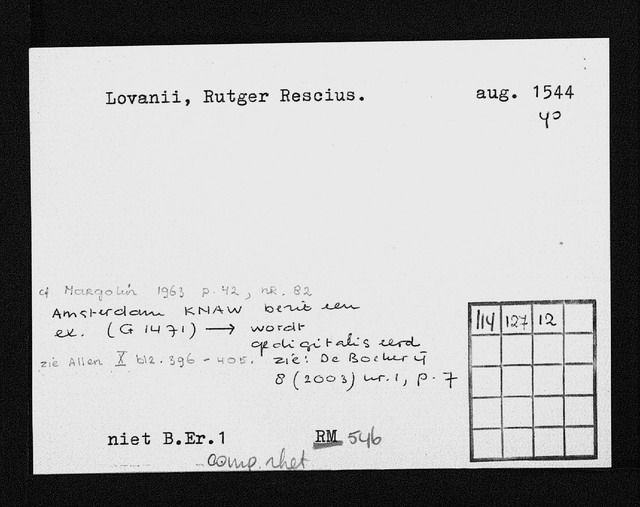 Lovanii, Rutger Rescius. aug. 1544
4°
cf Margolin 1963 p. 42, nr. 82
Amsterdam KNAW bezit een
ex. (G 1471) → wordt
gedigitaliseerd
zie Allen X blz. 396 - 405. zie: De Boeker ij
8 (2003) nr. 1, p. 7
114 127 12
niet B.Er.1 RM 546
comp. rhet